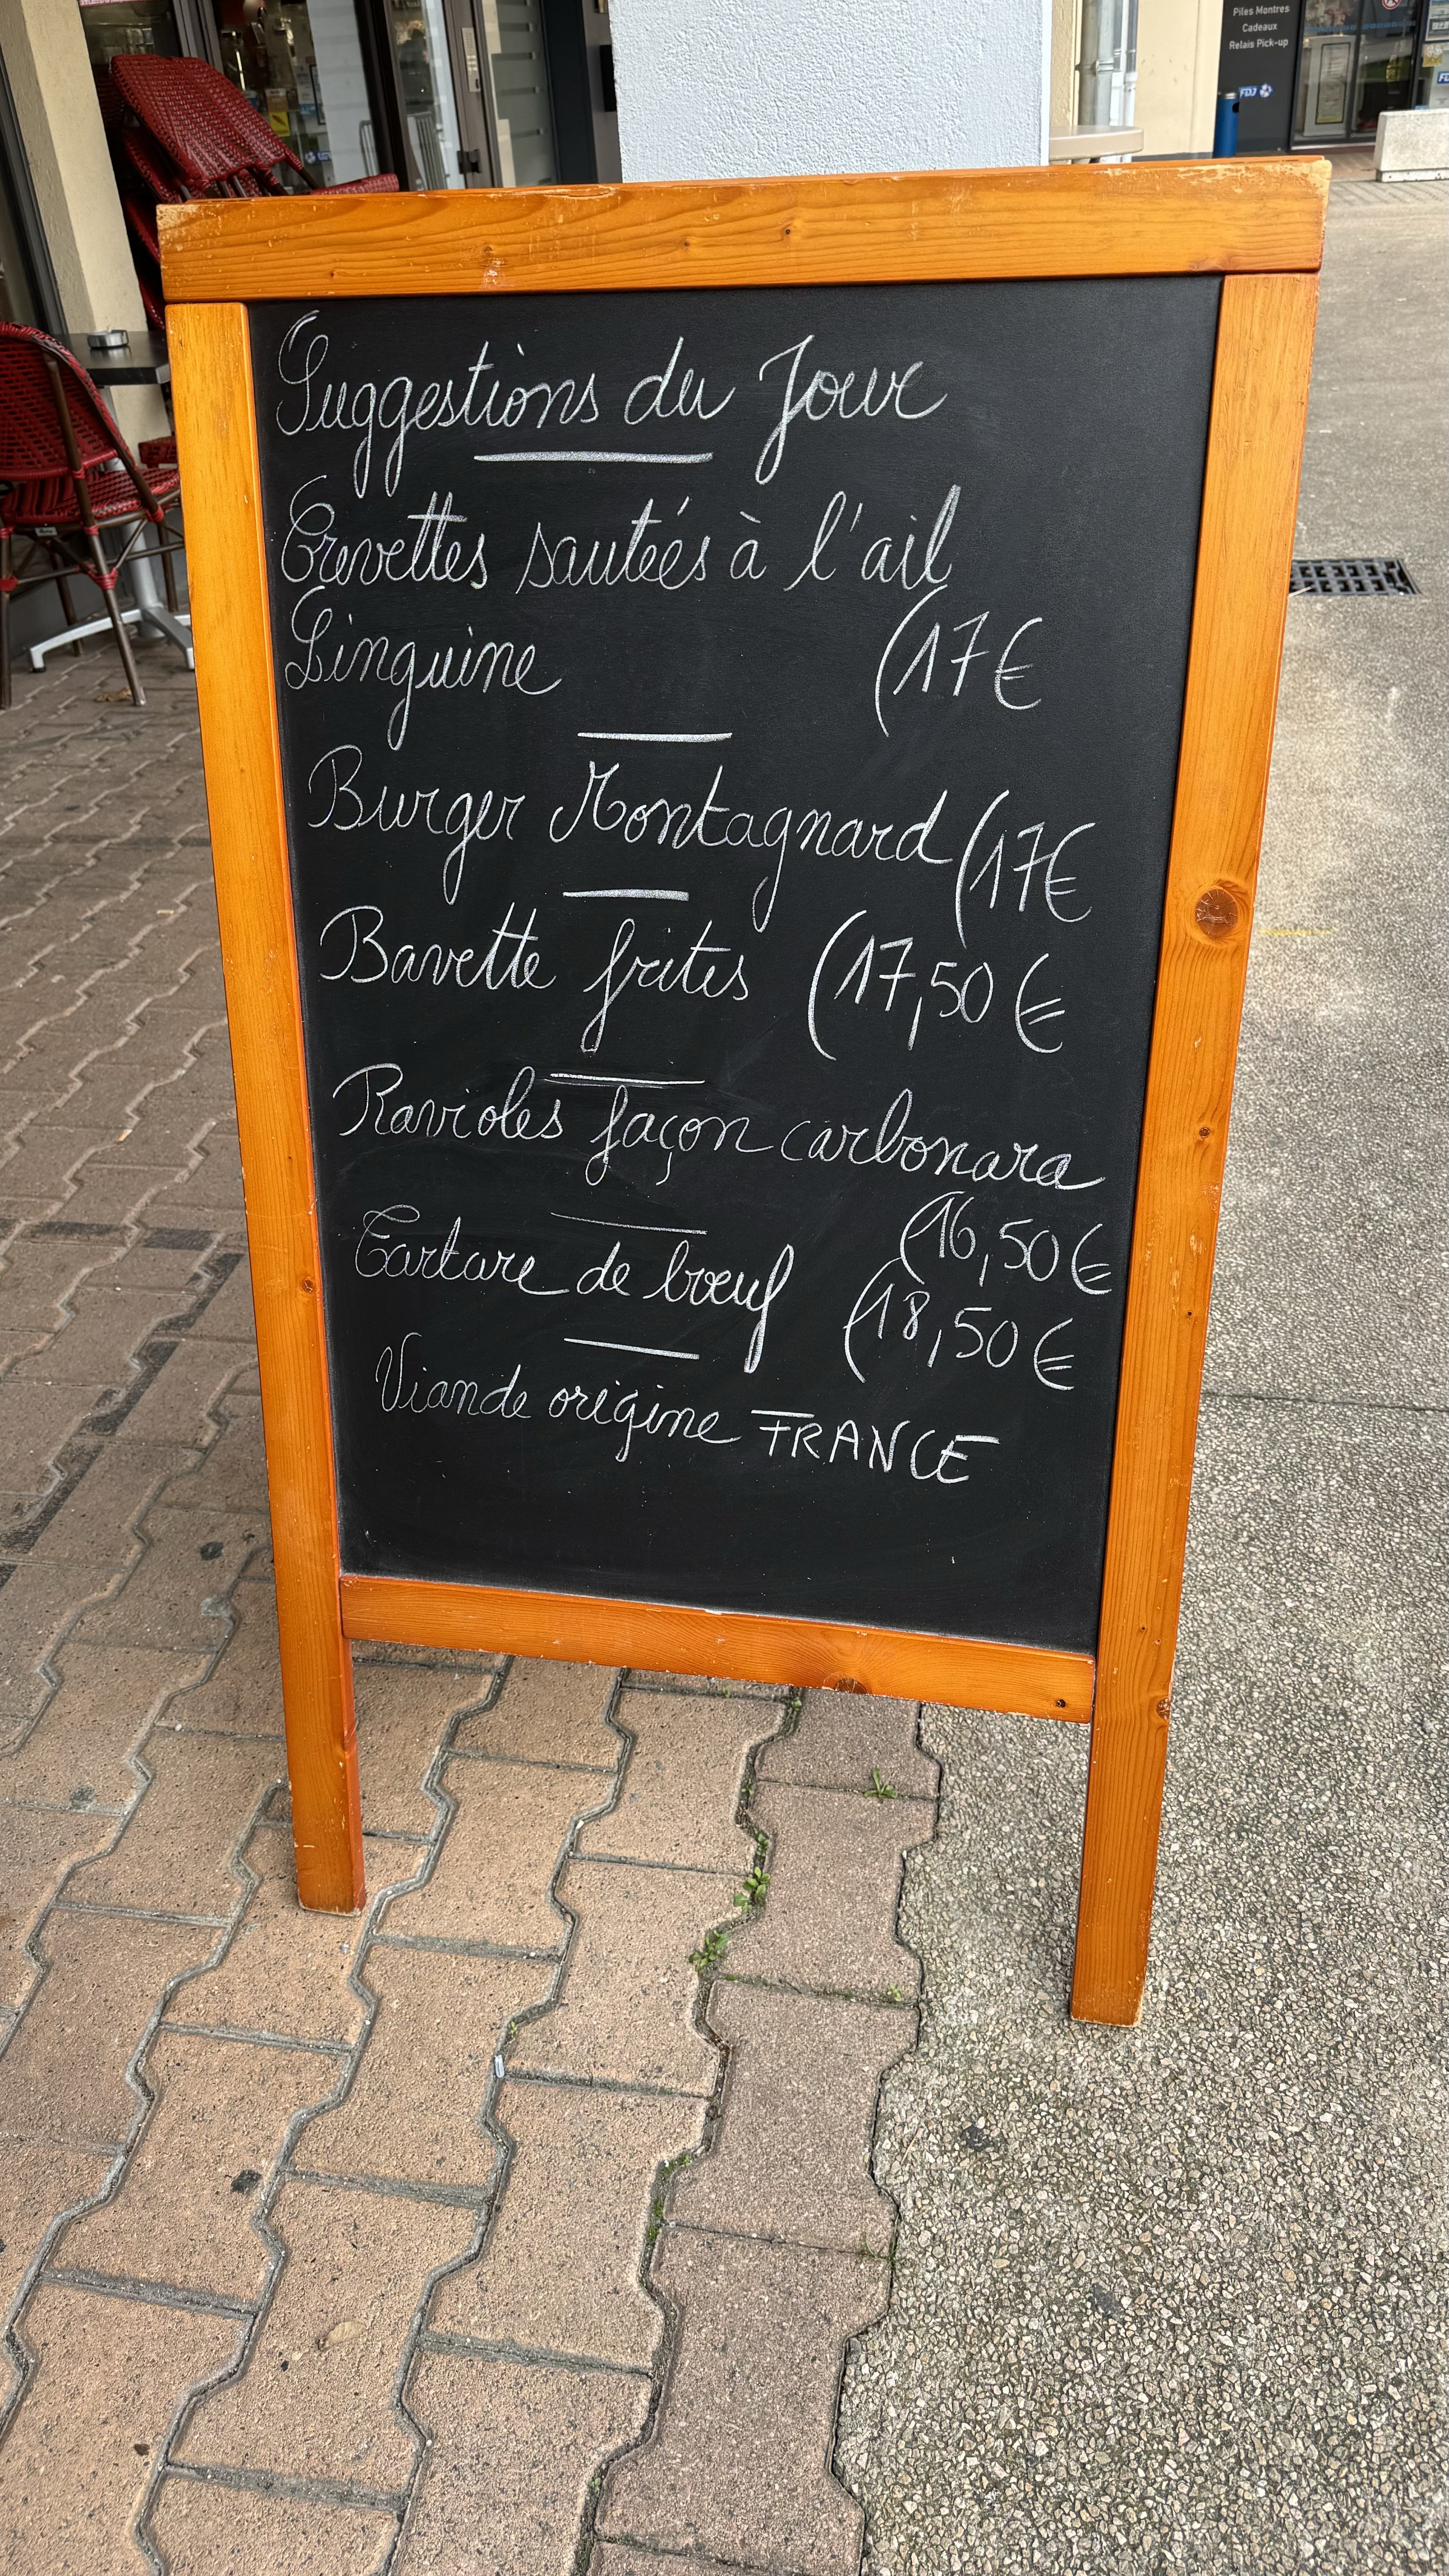 Piles Montres
Cadeaux
Relais Pick-up
FDJ
Suggestions du Jour
Crevettes sautées à l'ail
Linguine (17€
Burger Montagnard (17€
Bavette frites (17,50 €
Ravioles façon carbonara
(16,50€
Tartare de bœuf (18,50€
Viande origine FRANCE